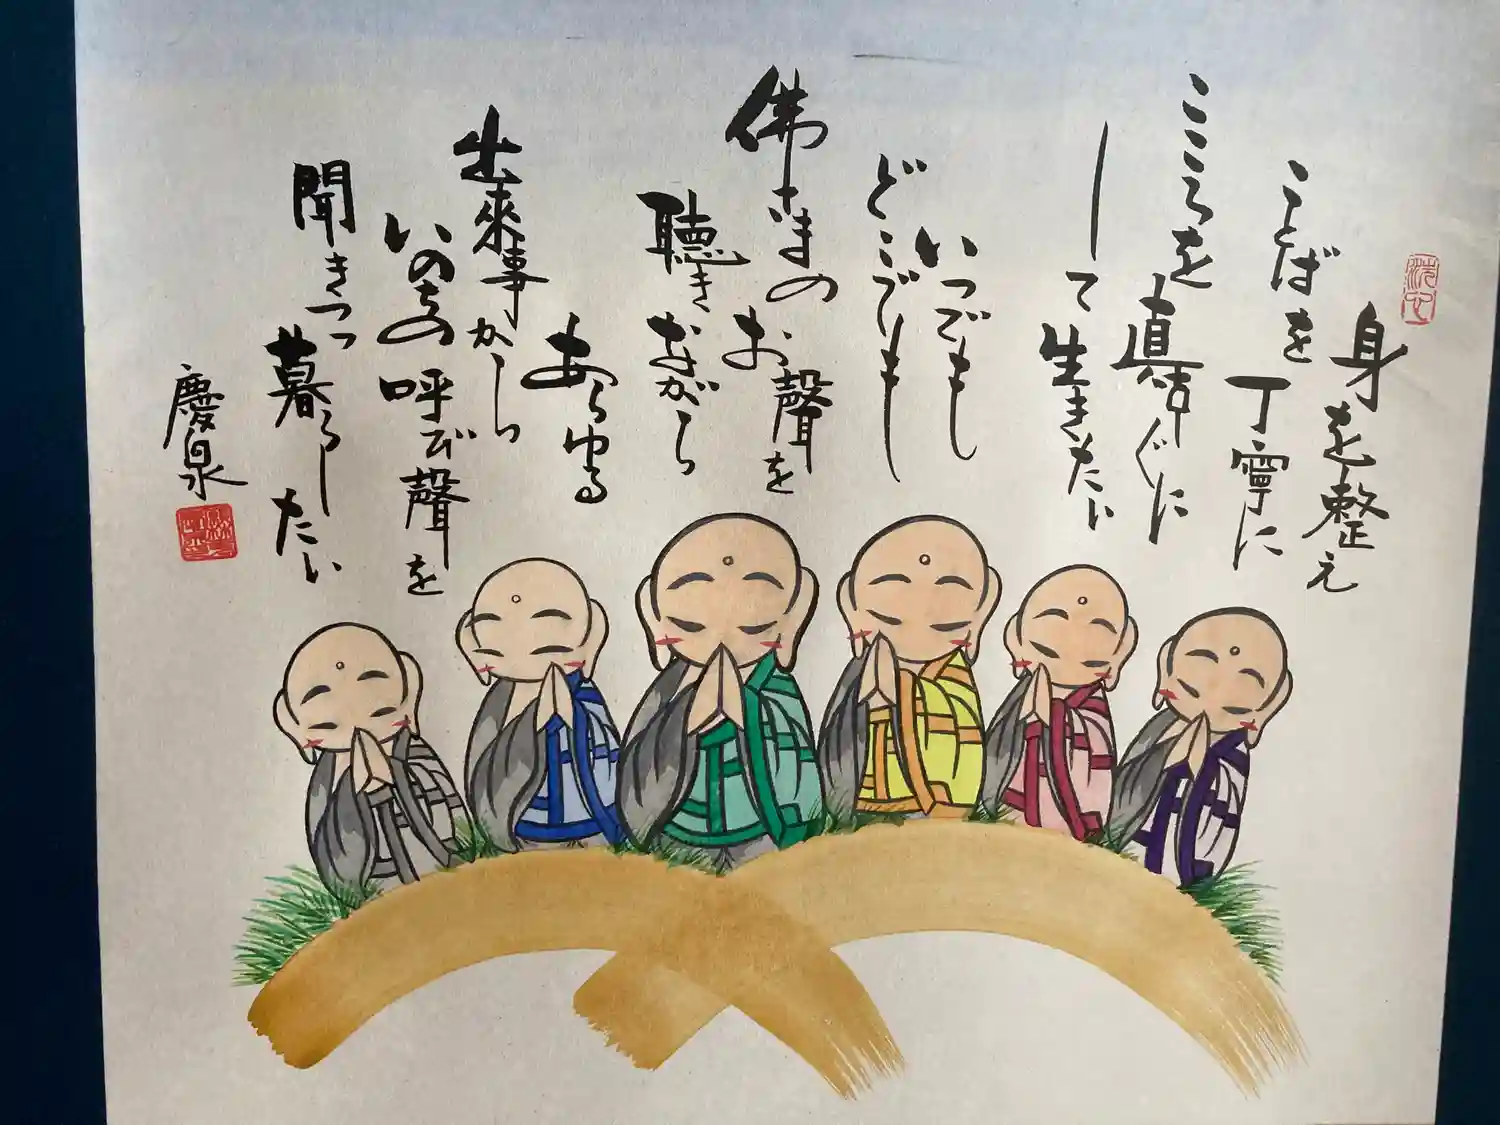 身を整え
ことばを
丁寧に
こころを
真直ぐに
して
生きたい
いつでも
どこでも
佛さまの
お聲を
聴き
ながら
あらゆる
出來事から
いのちの
呼び聲を
聞きつつ
暮らし
たい
慶泉
洗心